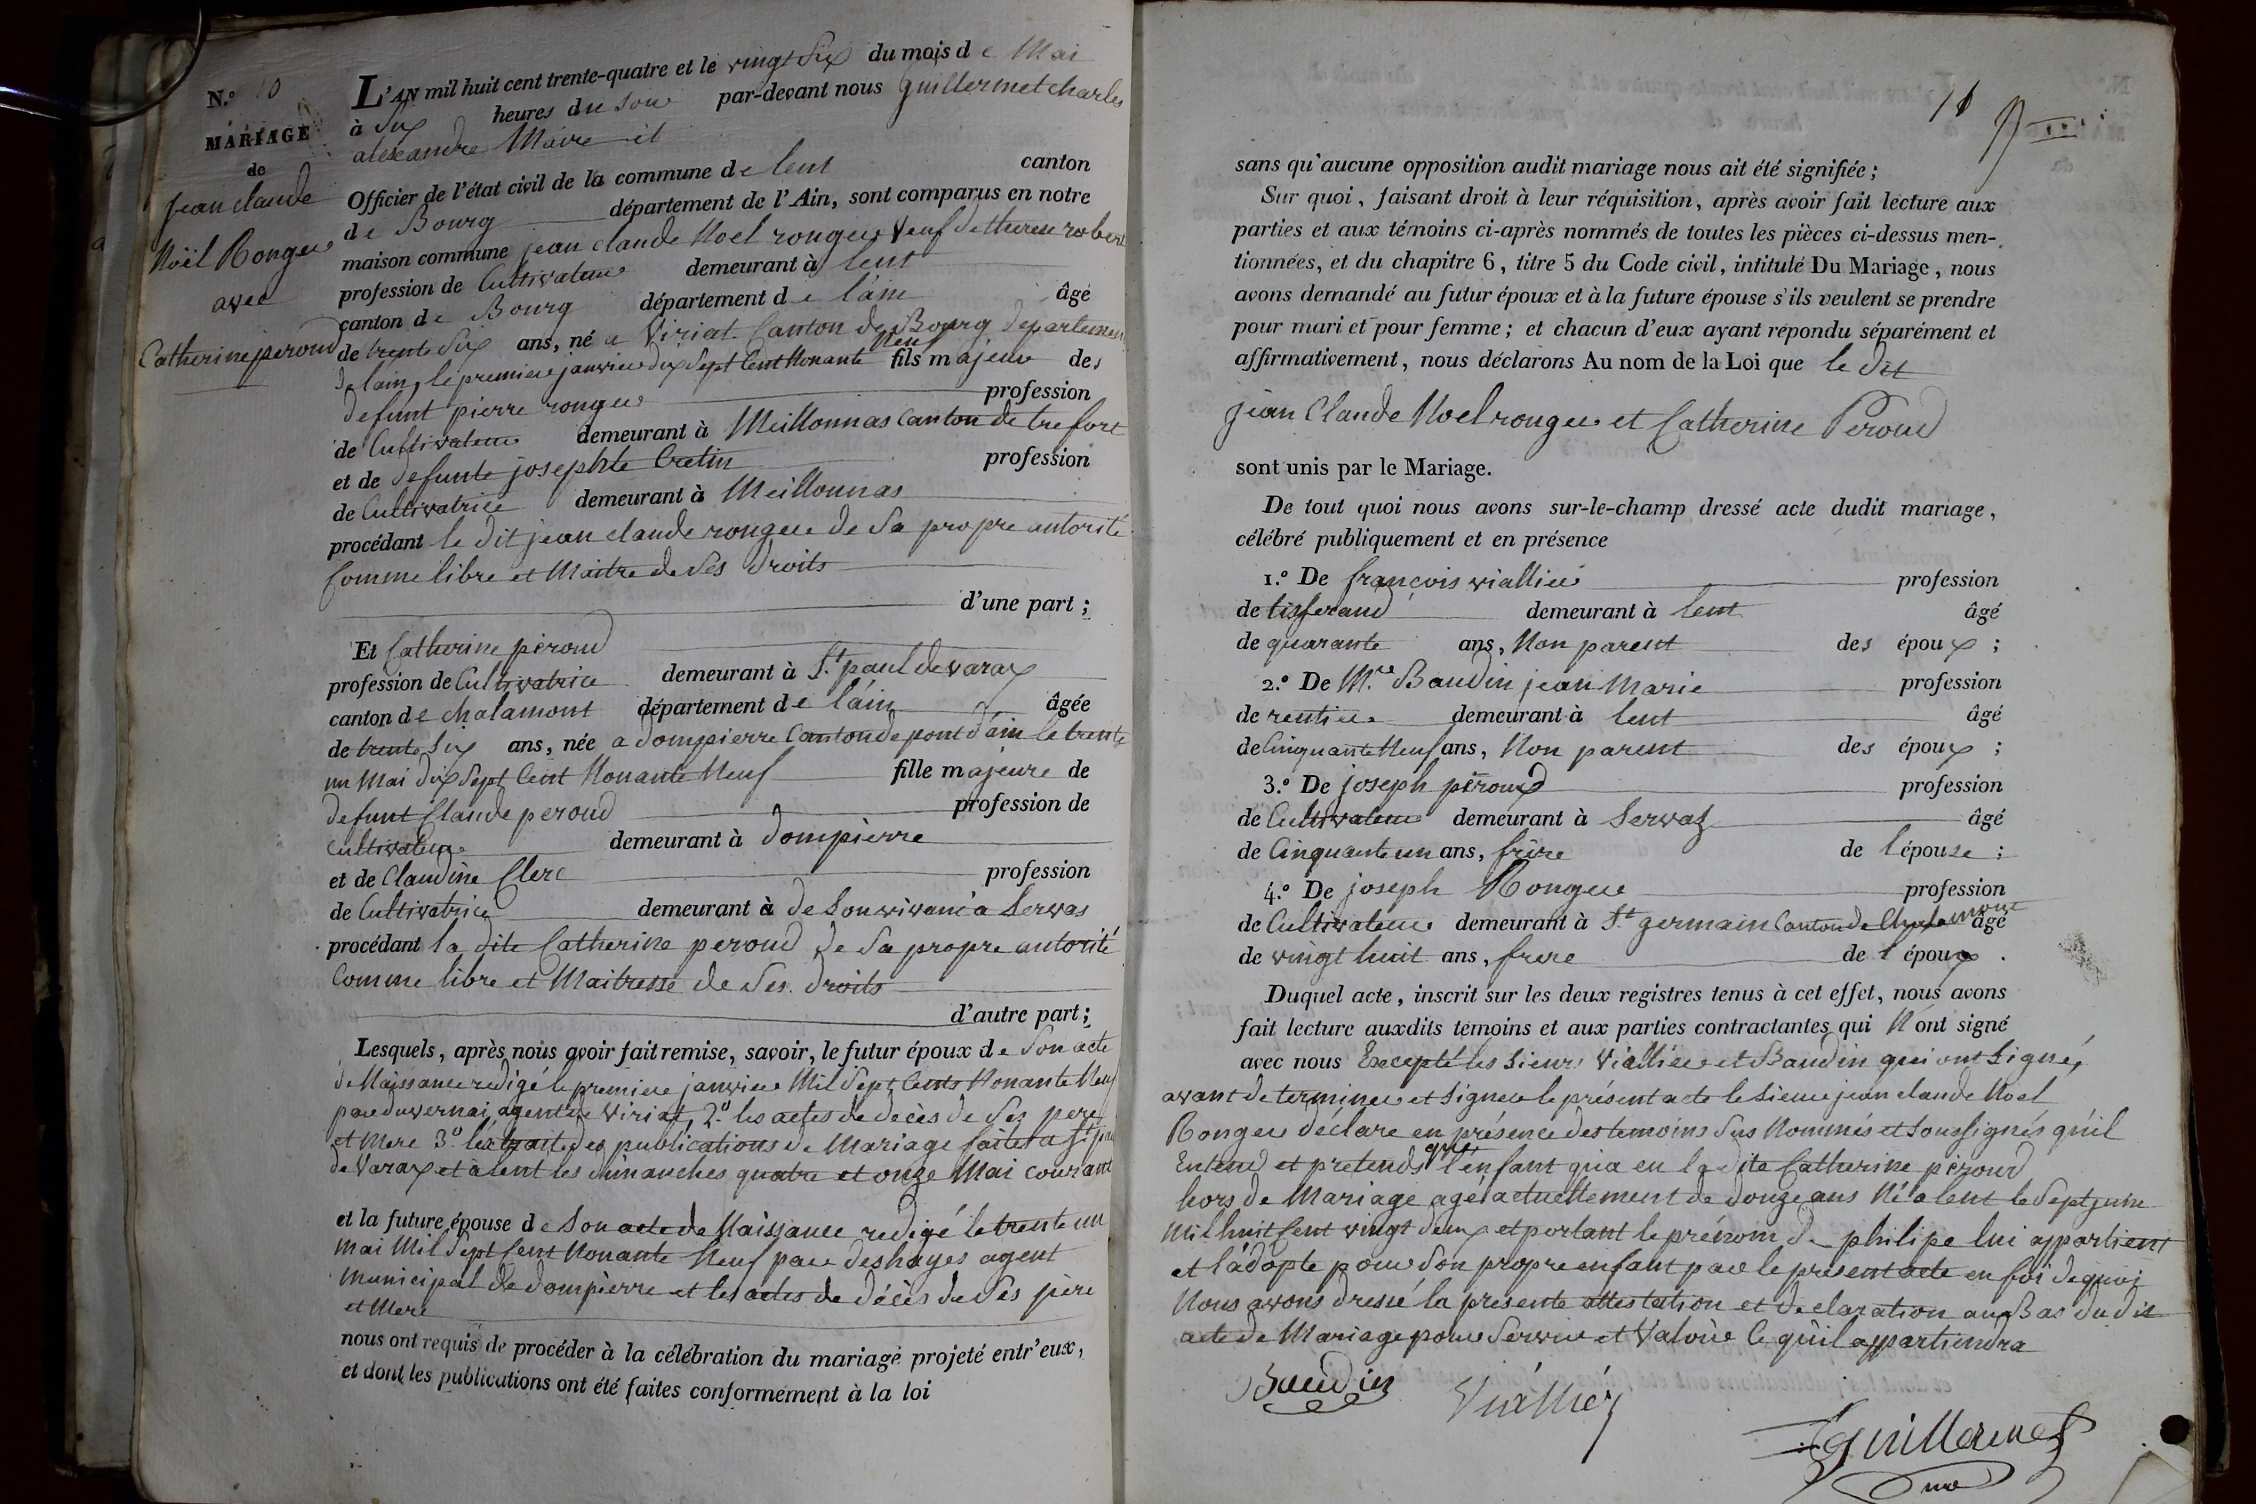 N.º 10
MARIAGE
de
jean claude
Noël Rongere
avec
Catherine peroud
L'AN mil huit cent trente-quatre et le vingt six du mois de Mai
à Six heures du soir par-devant nous Guillermet charles
alexandre Maire et
Officier de l'état civil de la commune de lent canton
de Bourg département de l'Ain, sont comparus en notre
maison commune jean claude Noel rongere Veuf de therese robert
profession de Cultivateur demeurant à lent
canton de Bourg département de l'ain âgé
de trente Six ans, né a Viriat Canton de Bourg departement
de lain, le premiere janvier dix Sept Cent Nonante Neuf fils majeur des
defunt pierre rongere profession
de Cultivateur demeurant à Meillonnas canton de trefort
et de defunte josephte Cretin profession
de Cultivatrice demeurant à Meillonnas
procédant le dit jean claude rongere de Sa propre autorité
Comme libre et Maitre de Ses droits
d'une part ;
Et Catherine peroud
profession de Cultivatrice demeurant à St. paul de varax
canton de chalamont département de l'ain âgée
de trente Six ans, née a dompierre Canton de pont d'ain le trente
un Mai dix Sept Cent Nonante Neuf fille majeure de
defunt Claude peroud profession de
Cultivateur demeurant à dompierre
et de Claudine Clerc profession
de Cultivatrice demeurant à de Son vivant a Servas
procédant la dite Catherine peroud de Sa propre autorité
Comme libre et Maitresse de Ses droits
d'autre part ;
Lesquels, après nous avoir fait remise, savoir, le futur époux de Son acte
de Naissance redigé le premiere janvier Mil Sept Cents Nonante Neuf
par duvernai agent de Viriat, 2.º les actes de decès de Ses pere
et Mere 3.º l'extrait des publications de Mariage faites a St. paul
de Varax et a lent les dimanches quatre et onze Mai courant
et la future épouse de Son acte de Naissance redigé le trente un
Mai Mil Sept Cent Nonante Neuf par deshayes agent
Municipal de dompierre et les actes de décès de Ses père
et Mere
nous ont requis de procéder à la célébration du mariage projeté entr'eux,
et dont les publications ont été faites conformément à la loi
11
sans qu'aucune opposition audit mariage nous ait été signifiée ;
Sur quoi, faisant droit à leur réquisition, après avoir fait lecture aux
parties et aux témoins ci-après nommés de toutes les pièces ci-dessus men-
tionnées, et du chapitre 6, titre 5 du Code civil, intitulé Du Mariage, nous
avons demandé au futur époux et à la future épouse s'ils veulent se prendre
pour mari et pour femme ; et chacun d'eux ayant répondu séparément et
affirmativement, nous déclarons Au nom de la Loi que le dit
jean Claude Noel rongere et Catherine Peroud
sont unis par le Mariage.
De tout quoi nous avons sur-le-champ dressé acte dudit mariage,
célébré publiquement et en présence
1.º De françois viallier profession
de tisserand demeurant à lent âgé
de quarante ans, Non parent des époux ;
2.º De Mre. Baudin jean Marie profession
de rentier demeurant à lent âgé
de Cinquante Neuf ans, Non parent des époux ;
3.º De joseph péroud profession
de Cultivateur demeurant à Servaz âgé
de Cinquante un ans, frère de l'épouse ;
4.º De joseph Rongere profession
de Cultivateur demeurant à St. germain Canton de Chalamont âgé
de vingt huit ans, frere de l'époux .
Duquel acte, inscrit sur les deux registres tenus à cet effet, nous avons
fait lecture auxdits témoins et aux parties contractantes qui N'ont signé
avec nous Excepté les Sieurs Viallier et Baudin qui ont Signé,
avant de terminer et Signer le présent acte le Sieur jean claude Noel
Rongere déclare en présence des temoins Sus Nommés et Soussignés qu'il
Entend et pretends que l'enfant qu'a eu la dite Catherine péroud
hors de Mariage agé actuellement de douze ans Né a lent le Sept juin
Mil huit Cent vingt deux et portant le prénom de philipe lui appartient
et l'adopte pour Son propre enfant par le present acte en foi de quoi
Nous avons dressé la présente attestation et declaration au Bas du dit
acte de Mariage pour Servir et Valoir Ce qu'il appartiendra
Baudin
Viallier
Guillermet